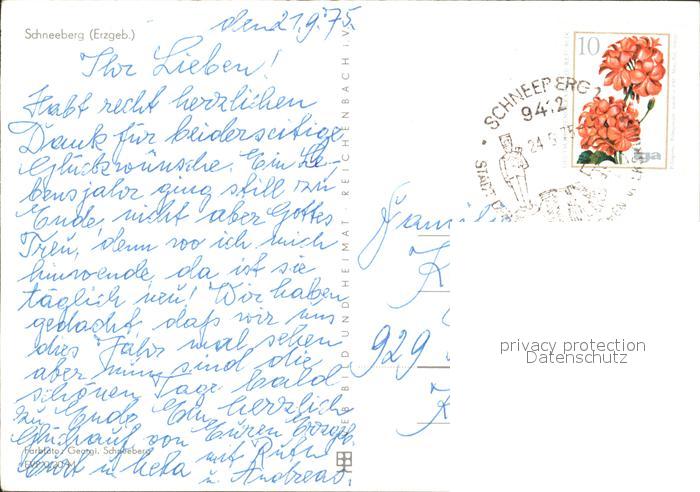 Schneeberg (Erzgeb.)
den 21.9.75.
Ihr Lieben!
Habt recht herzlichen
Dank für beiderseitige
Glückwünsche. Ein Le-
bensjahr ging still zu
Ende, nicht aber Gottes
Treu, denn wo ich mich
hinwende, da ist sie
täglich neu! Wir haben
gedacht, daß wir uns
dies Jahr mal sehen
aber nun sind die
schönen Tage bald
zu Ende. Ein herzlich
Glückauf von Euren Erzgb.
Farbfoto: Georgi, Schneeberg
Kurt u. Meta mit Ruth
u. Andreas.
BILD UND HEIMAT REICHENBACH I.V.
10
iga
SCHNEEBERG 2
942
24.9.75
STADT
Famili
K
929
privacy protection
Datenschutz